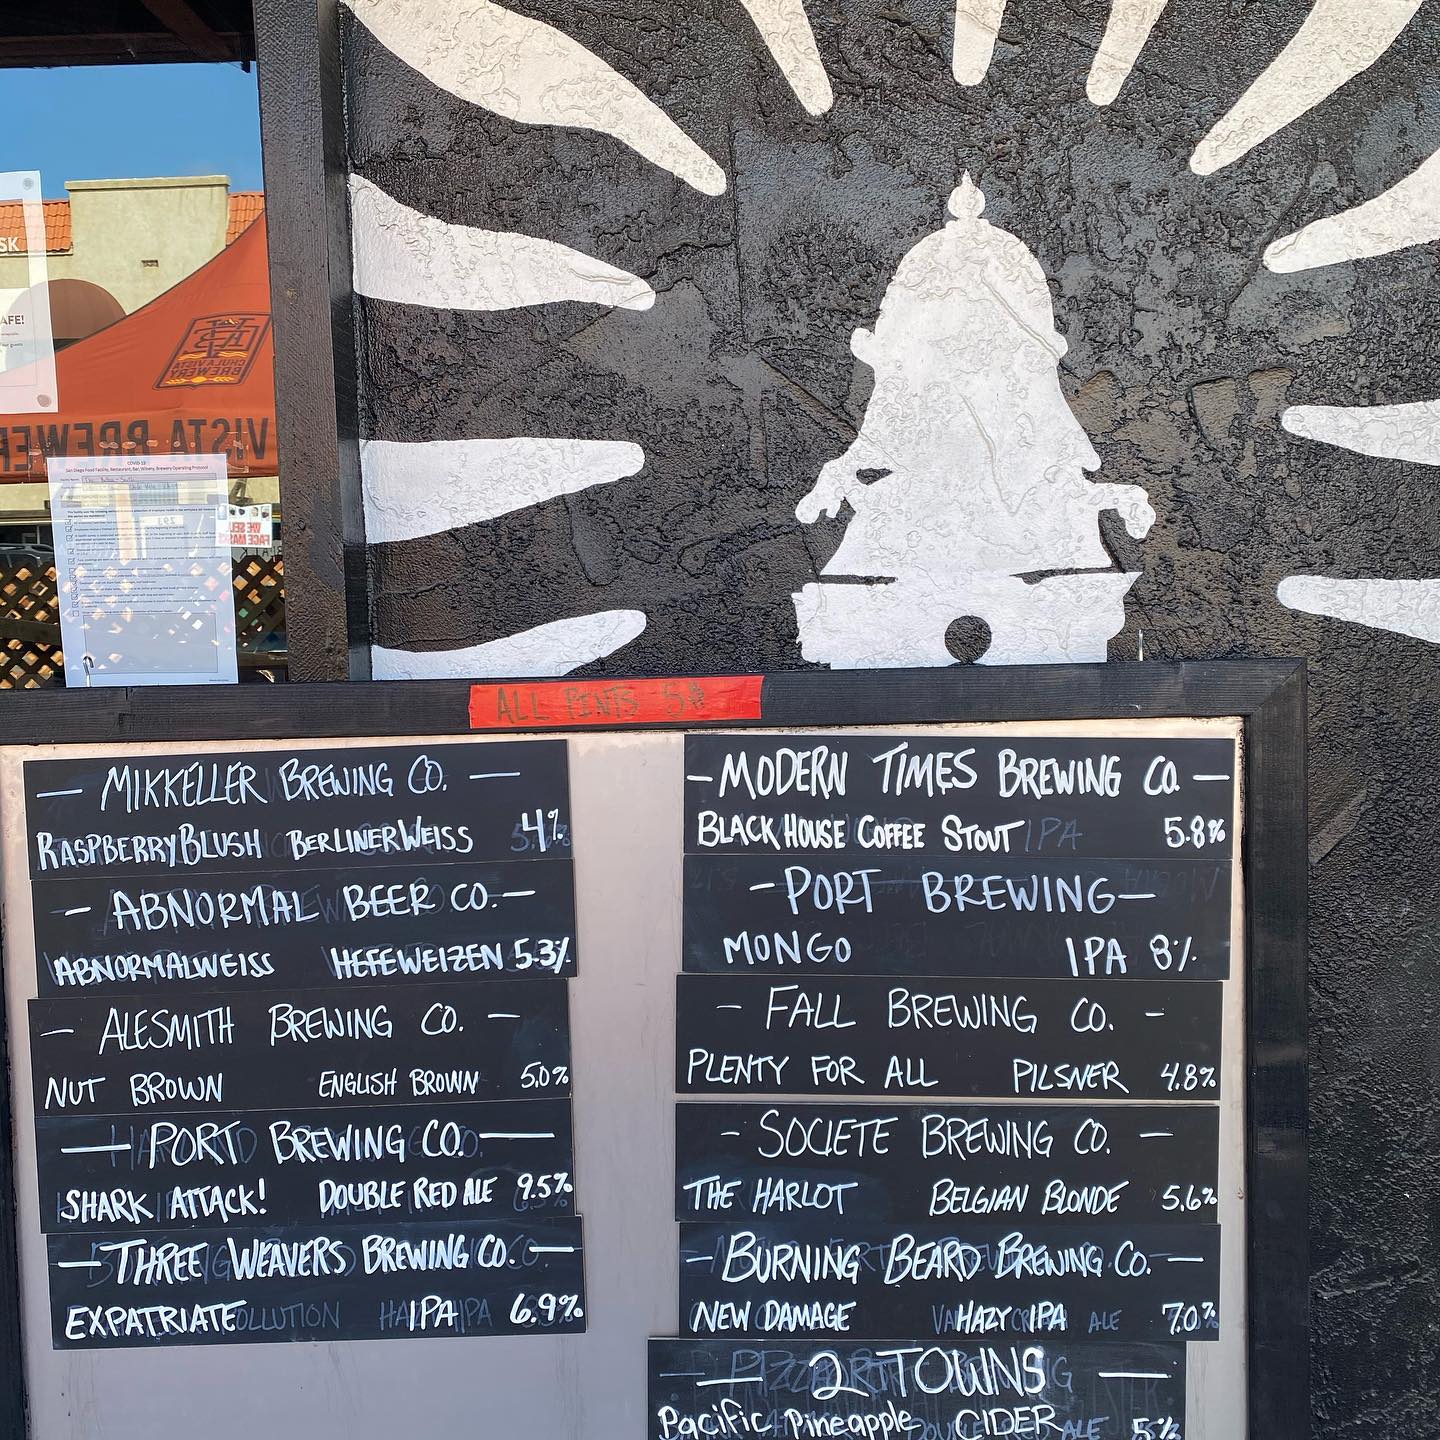 SK
AFE!
CHULA VISTA
BREWERY
VISTA BREWE
COVID-19
San Diego Food Facility, Restaurant, Bar, Winery, Brewery Operating Protocol
WE SELL
FACE MASKS
ALL PINTS 5$
— MIKKELLER BREWING CO. —
RASPBERRY BLUSH BERLINER WEISS 4%
— ABNORMAL BEER CO. —
ABNORMALWEISS HEFEWEIZEN 5.3%
— ALESMITH BREWING CO. —
NUT BROWN ENGLISH BROWN 5.0%
— PORT BREWING CO. —
SHARK ATTACK! DOUBLE RED ALE 9.5%
— THREE WEAVERS BREWING CO. —
EXPATRIATE IPA 6.9%
— MODERN TIMES BREWING CO. —
BLACK HOUSE COFFEE STOUT 5.8%
— PORT BREWING —
MONGO IPA 8%
— FALL BREWING CO. —
PLENTY FOR ALL PILSNER 4.8%
— SOCIETE BREWING CO. —
THE HARLOT BELGIAN BLONDE 5.6%
— BURNING BEARD BREWING CO. —
NEW DAMAGE HAZY IPA 7.0%
— 2 TOWNS —
Pacific Pineapple CIDER 5%